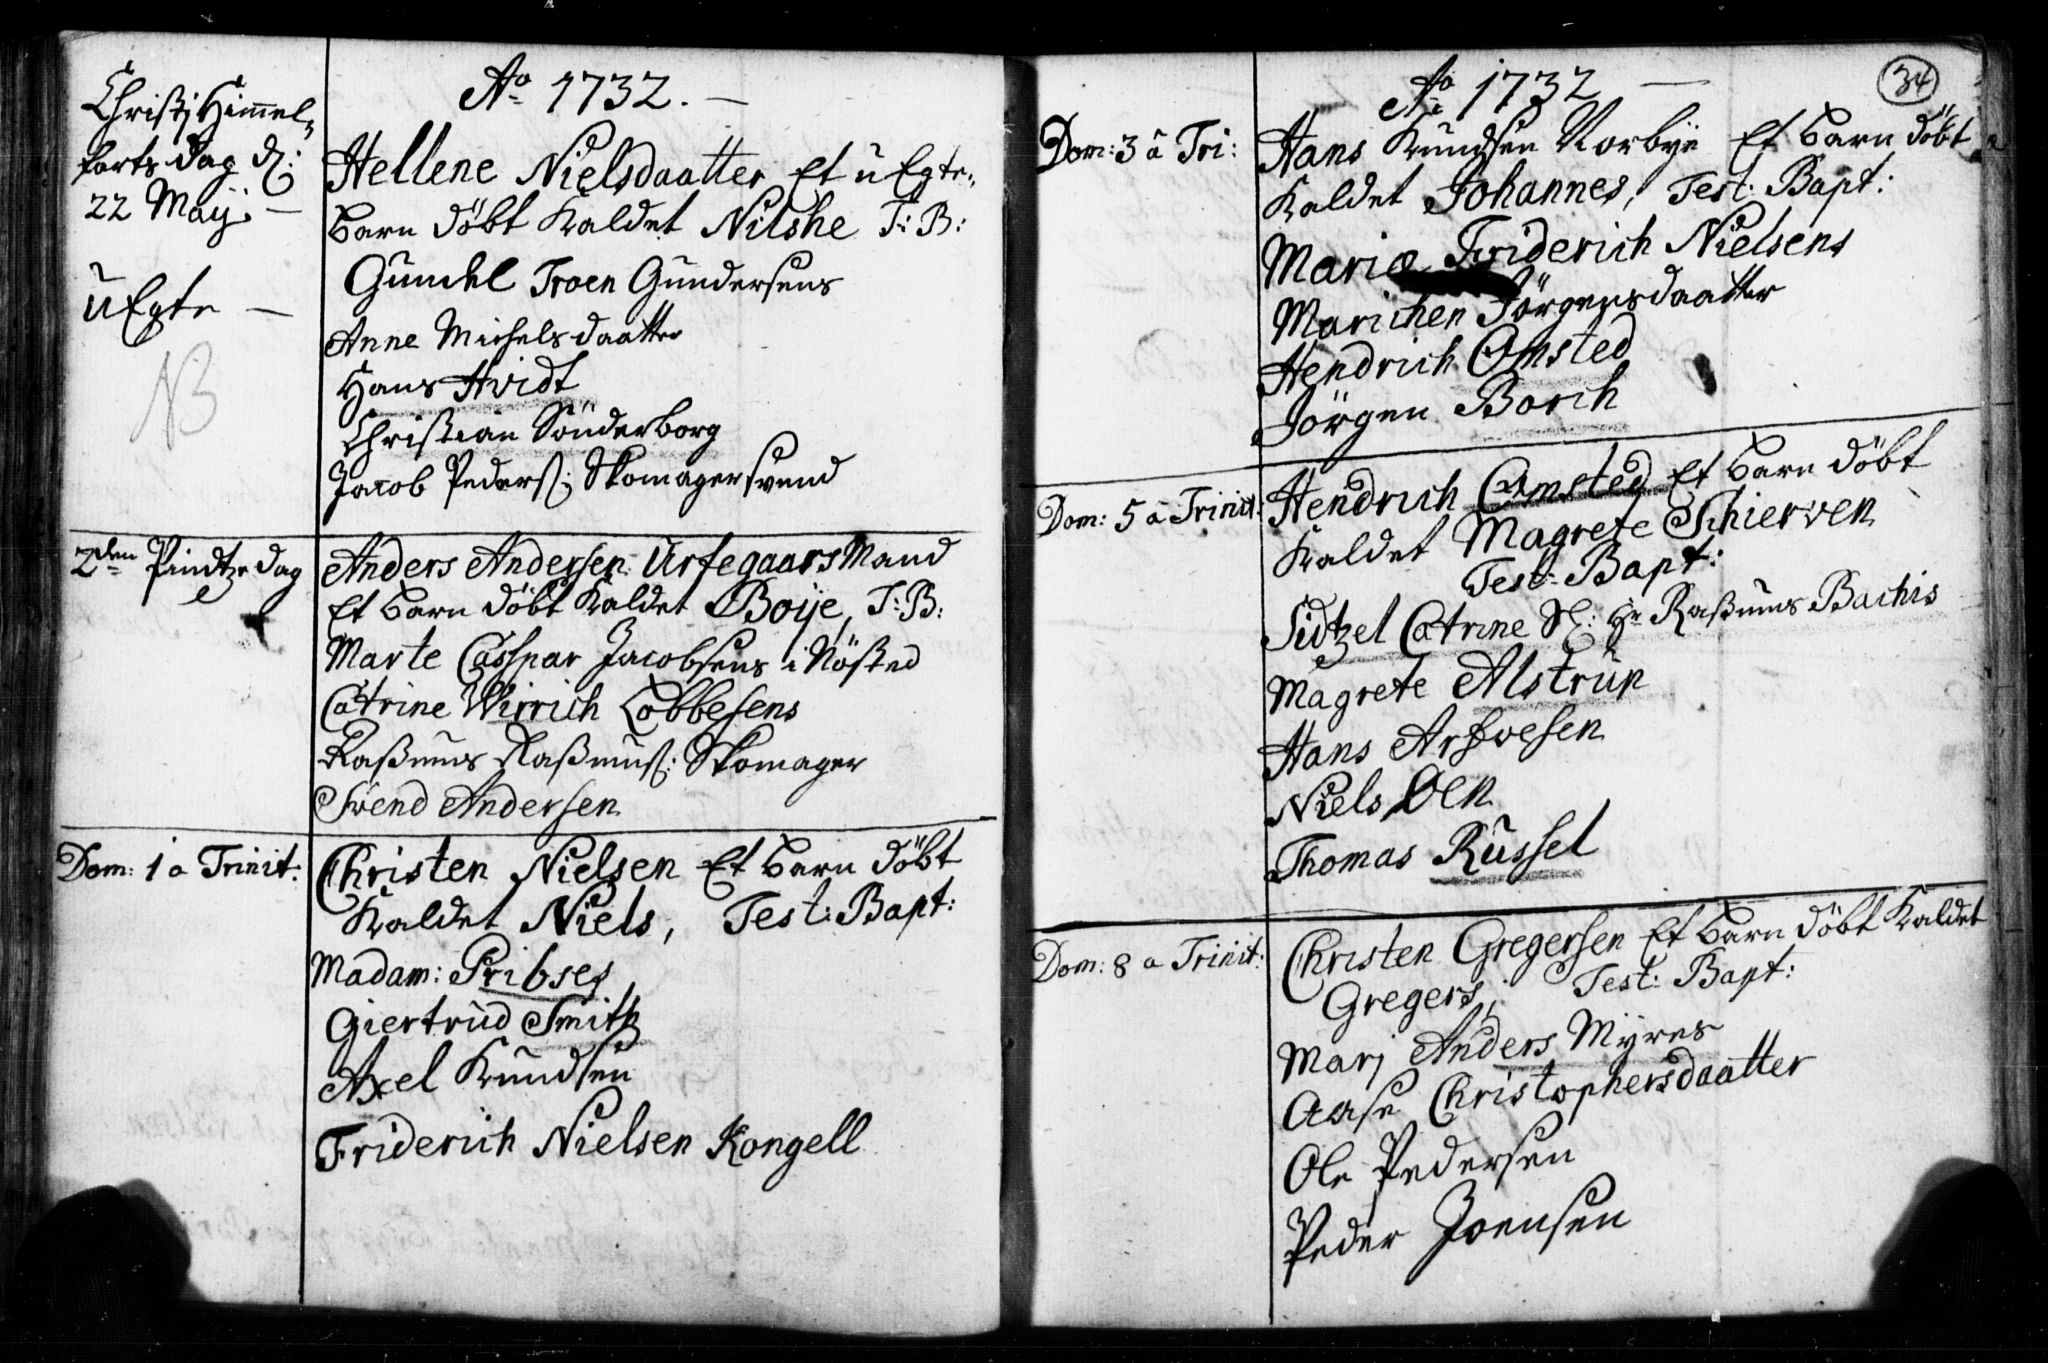 Ao 1732. —
Christi Himmel-
farts dag d:
22 Maij. —
uEgte —
NB
Hellene Nielsdaatter Et u Egte-
barn döbt kaldet Nilshe T: B:
Gunchel Troen Gundersens
Anne Michelsdaatter
Hans Hvidt
Christian Sönderborg
Jacob Peders: Skomagersvend
2den Pindtze dag
Anders Andersen Urtegaars Mand
Et barn döbt kaldet Boije, T: B:
Marte Casspar Jacobsens i Nösted
Catrine Wirrich Lobbesens
Rasmus Rasmus: Skomager
Svend Andersen
Dom: 1 a Trinit:
Christen Nielsen Et barn döbt
kaldet Niels, Test: Bapt:
Madam: Pribses
Giertrud Smith
Axel Knudsen
Friderich Nielsen Kongell
34
Ao 1732 —
Dom: 3 a Tri:
Hans Knudsen Norbye Et barn döbt
kaldet Johannes, Test: Bapt:
Mariæ Friderich Nielsens
Marichen Jörgensdaatter
Hendrich Omsted
Jörgen Borch
Dom: 5 a Trinit:
Hendrich Omsted Et barn döbt
kaldet Magrete Schierven
Test: Bapt:
Sidtzel Catrine Sl: Hr Rasmus Bachis
Magrete Alstrup
Hans Arsvesen
Niels Oen
Thomas Russel
Dom: 8 a Trinit:
Christen Gregersen Et barn döbt kaldet
Gregers, Test: Bapt:
Marj Anders Myres
Aase Christophersdaatter
Ole Pedersen
Peder Joensen